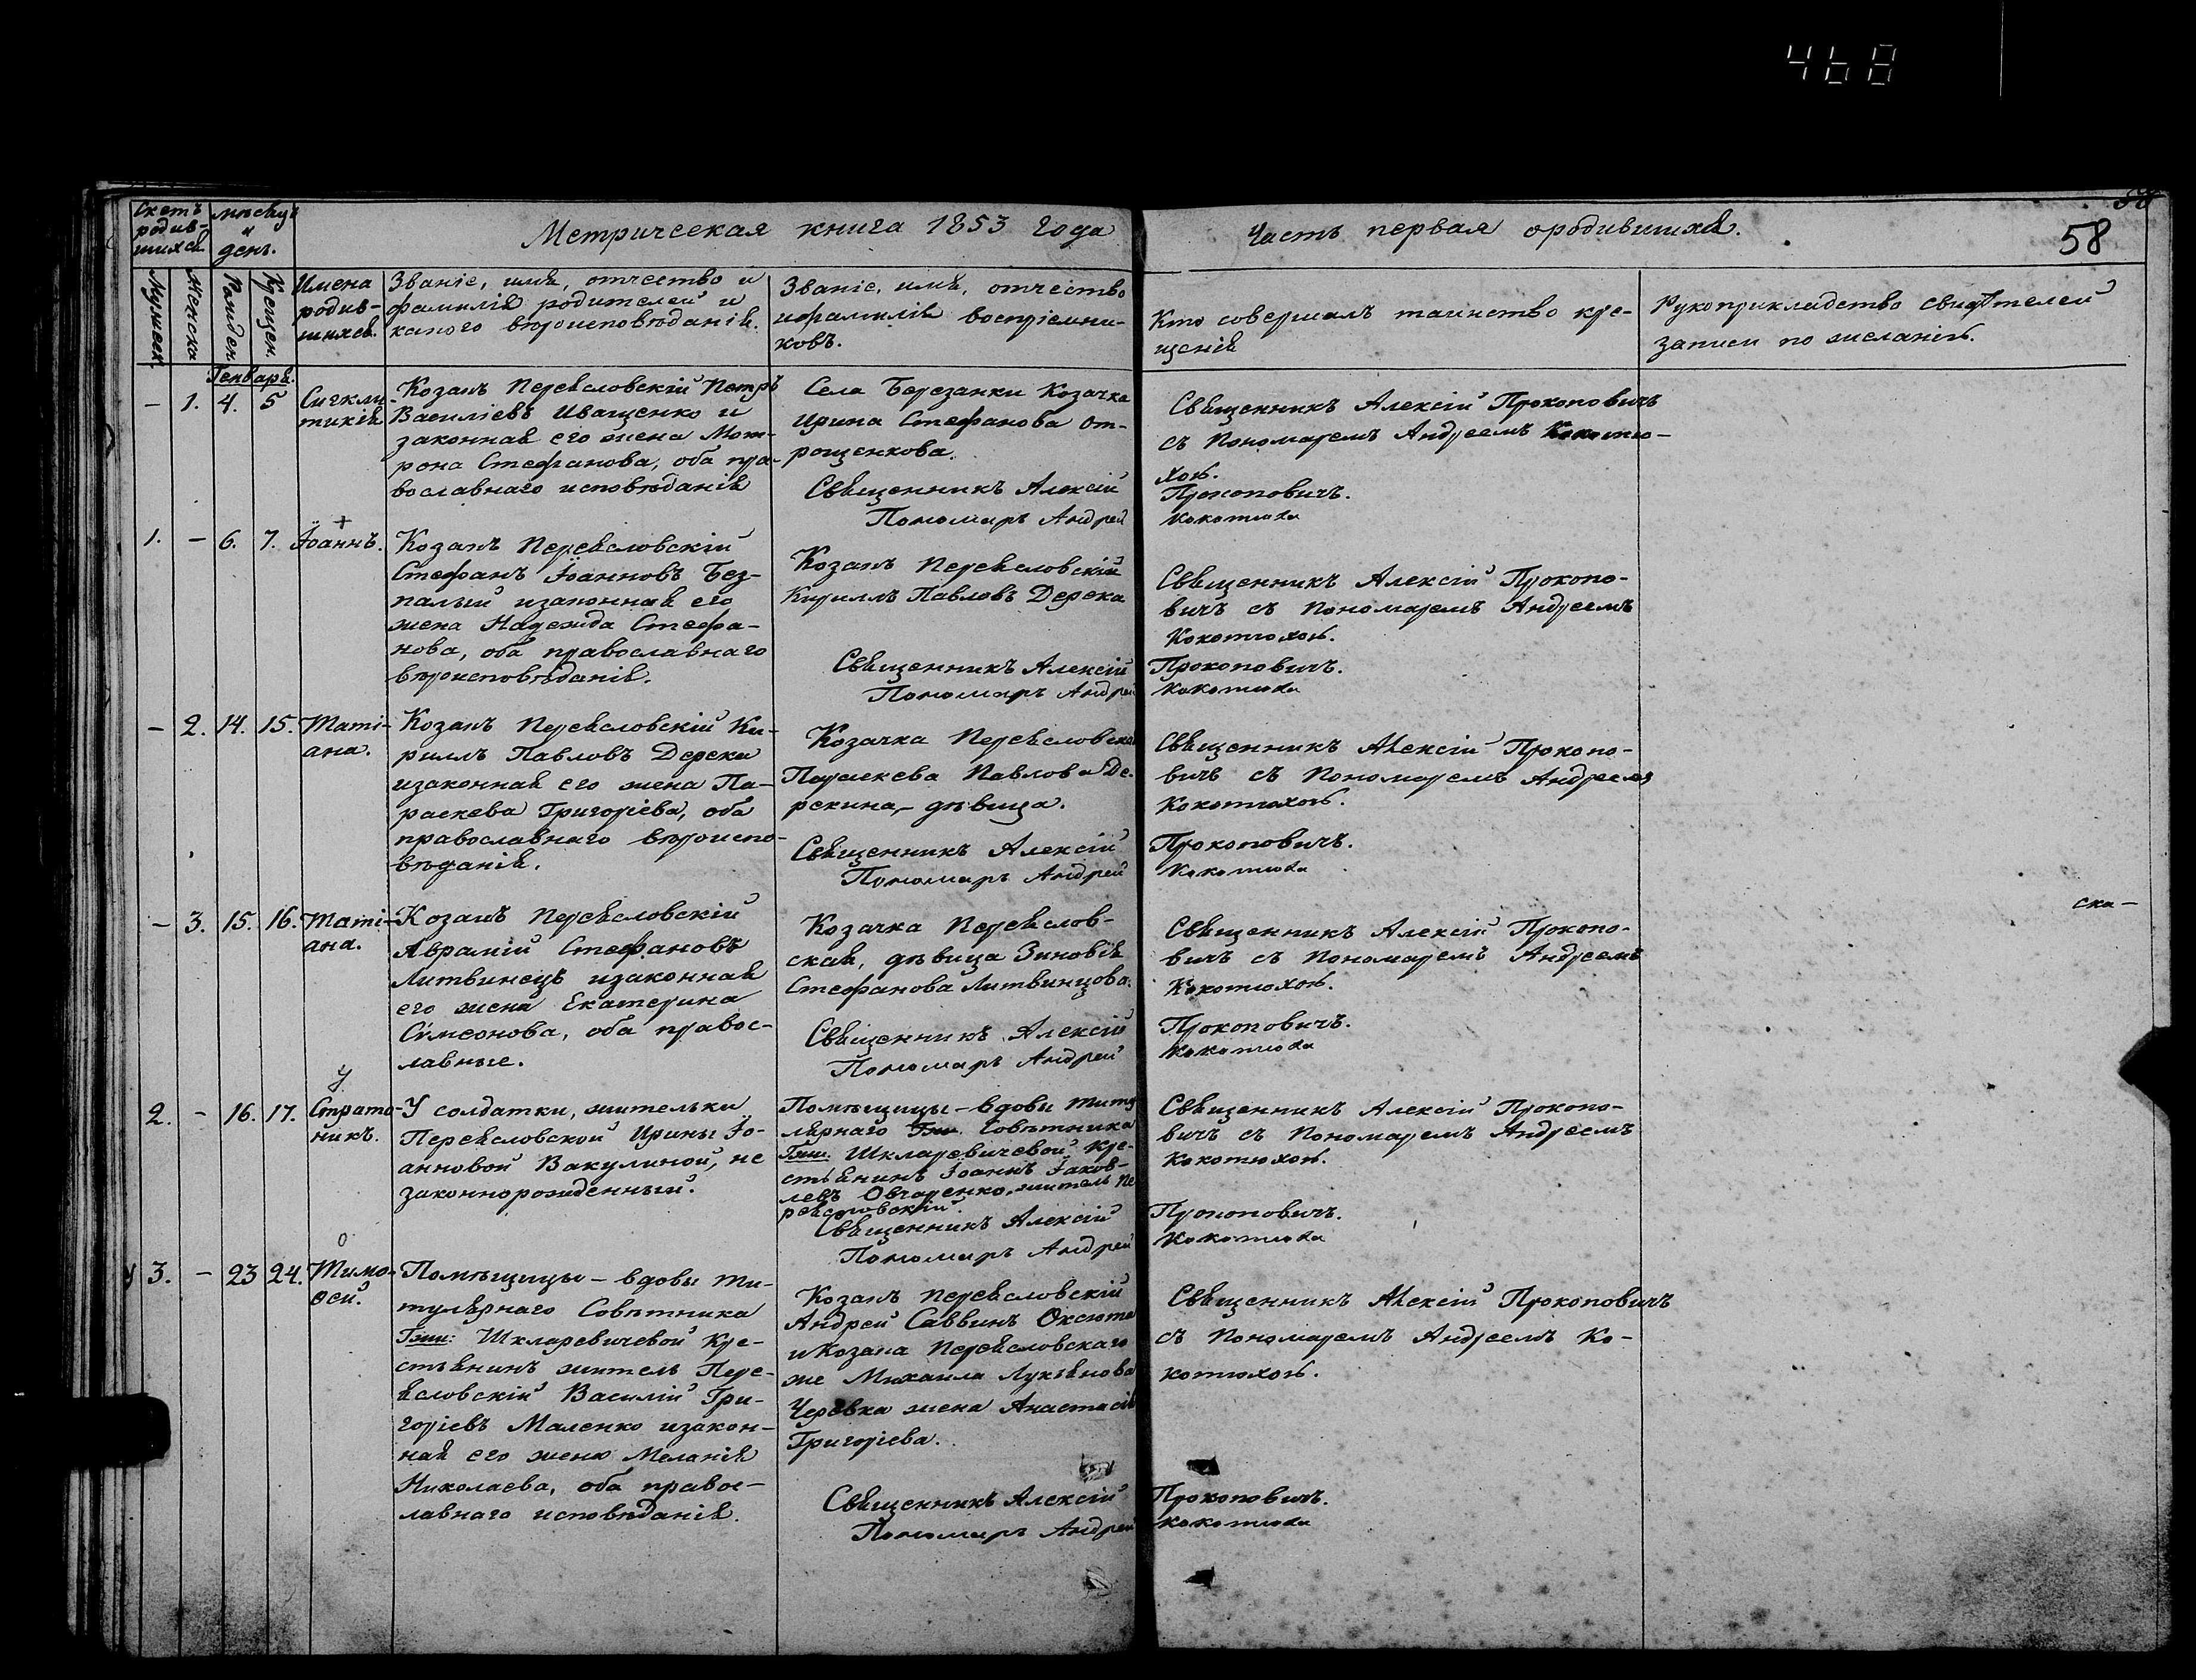 468
58
Метрическая книга 1853 года
Часть первая ородившихся.
58
Счетъ родив-шихся
мѣсяцъ и день.
Мужеск.
Женска
Рожден.
Крещен.
Имена
родив-
шихся.
Званіе, имя, отчество и
фамилія родителей и
какого вѣроисповѣданія.
Званіе, имя, отчество
ифамилія воспріемни-
ковъ.
Кто совершалъ таинство кре-
щенія
Рукоприкладство свидѣтелей
записи по желанію.
Генваря.
– 1. 4. 5
Сигкли-
тикія
Козакъ Переясловскій Петръ
Василіевъ Иващенко и
законная его жена Мот-
рона Стефанова, оба пра-
вославнаго исповѣданія
Села Березанки Козачка
Ирина Стефанова От-
рощенкова.
Священникъ Алексій
Пономарь Андрей
Священникъ Алексій Прокоповичъ
съ Пономаремъ Андреемъ Кокотю-
хою.
Прокоповичъ.
Кокотюха
1. – 6. 7.
Іоаннъ.
Козакъ Переясловскій
Стефанъ Іоанновъ Без-
палый изаконная его
жена Надежда Стефа-
нова, оба православнаго
вѣроисповѣданія.
Козакъ Переясловскій
Кириллъ Павловъ Дерека
Священникъ Алексій
Пономарь Андрей
Священникъ Алексій Прокопо-
вичъ съ Пономаремъ Андреемъ
Кокотюхою.
Прокоповичъ.
Кокотюха
– 2. 14. 15.
Таті-
ана.
Козакъ Переясловскій Ки-
риллъ Павловъ Дерека
изаконная его жена Па-
раскева Григорієва, оба
православнаго вѣроиспо-
вѣданія.
Козачка Переясловская
Параскева Павлова Де-
рекина, – дѣвица.
Священникъ Алексій
Пономарь Андрей
Священникъ Алексій Прокопо-
вичъ съ Пономаремъ Андреемъ
Кокотюхою.
Прокоповичъ.
Кокотюха
– 3. 15. 16.
Таті-
ана.
Козакъ Переясловскій
Аврамій Стефановъ
Литвинецъ изаконная
его жена Екатерина
Сѵмеонова, оба правос-
лавные.
Козачка Переяслов-
ская, дѣвица Зиновія
Стефанова Литвинцова.
Священникъ Алексій
Пономарь Андрей
Священникъ Алексій Прокопо-
вичъ съ Пономаремъ Андреемъ
Кокотюхою.
Прокоповичъ.
Кокотюха
ска–
2. – 16. 17.
Страто-
никъ.
У солдатки, жительки
Переясловской Ирины Іо-
анновой Вакулиной, не
законнорожденный.
Помѣщицы – вдовы Титу
лярнаго Совѣтника
Гжи: Шкларевичевой Кре-
стьянинъ Іоаннъ Іаков-
левъ Овчаренко, житель Пе
реясловскій.
Священникъ Алексій
Пономарь Андрей
Священникъ Алексій Прокопо-
вичъ съ Пономаремъ Андреемъ
Кокотюхою.
Прокоповичъ.
Кокотюха
3. – 23 24.
Тимо-
ѳей.
Помѣщицы – вдовы Ти-
тулярнаго Совѣтника
Гжи: Шкларевичевой Кре-
стьянинъ житель Пере-
ясловскій Василій Гри-
горіевъ Маленко изакон-
ная его жена Меланія
Николаева, оба правос-
лавнаго исповѣданія.
Козакъ Переясловскій
Андрей Саввинъ Оксюта
иКозака Переясловскаго
же Михаила Лукьянова
Черевка жена Анастасія
Григоріева.
Священникъ Алексій
Пономарь Андрей
Священникъ Алексій Прокоповичъ
съ Пономаремъ Андреемъ Ко-
котюхою.
Прокоповичъ.
Кокотюха